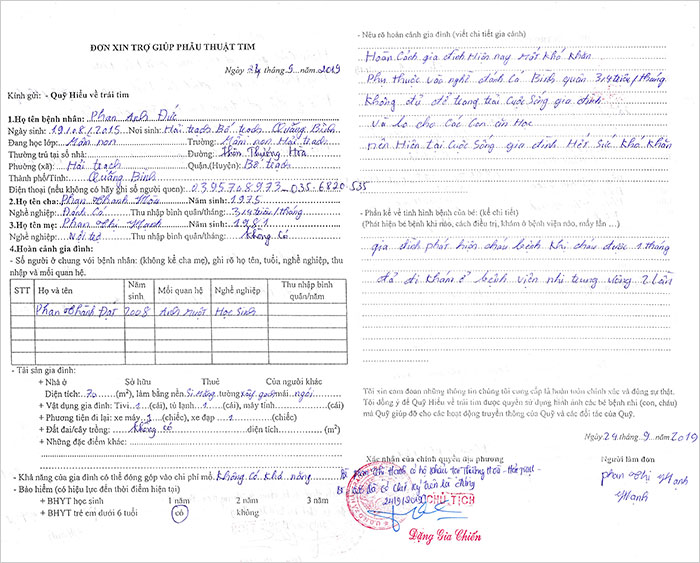 ĐƠN XIN TRỢ GIÚP PHẪU THUẬT TIM
Ngày 24 tháng 9 năm 2019
Kính gửi: - Quỹ Hiểu về trái tim
1.Họ tên bệnh nhân: Phan Anh Đức
Ngày sinh: 19/08/2015 Nơi sinh: Hải trạch Bố trạch Quảng Bình
Đang học lớp: Mầm non Trường: Mầm non Hải trạch
Thường trú tại số nhà: Đường: Thôn Thượng Hòa
Phường (xã): Hải trạch Quận.(Huyện): Bố trạch
Thành phố/Tỉnh: Quảng Bình
Điện thoại (nếu không có hãy ghi số người quen): 0395708973 - 035-6820 535
2.Họ tên cha: Phan Thanh Hòa Năm sinh: 1975
Nghề nghiệp: Đánh Cá Thu nhập bình quân/tháng: 3,4 triệu/tháng
3.Họ tên mẹ: Phan Thị Mạnh Năm sinh: 1981
Nghề nghiệp: Nội trợ Thu nhập bình quân/tháng: Không có
4.Hoàn cảnh gia đình:
- Số người ở chung với bệnh nhân: (không kể cha mẹ), ghi rõ họ tên, tuổi, nghề nghiệp, thu
nhập và mối quan hệ.
STT Họ và tên Năm sinh Mối quan hệ Nghề nghiệp Thu nhập bình quân/năm
Phan Thành Đạt 2008 Anh ruột Học Sinh
- Tài sản gia đình:
+ Nhà ở Sở hữu Thuê Của người khác
Diện tích: 70 (m²), làm bằng nền Si măng tường xây mái ngói
+ Vật dụng gia đình: Tivi 1 (cái), tủ lạnh 1 (cái), máy tính (cái)
+ Phương tiện đi lại: xe máy 1 (chiếc), xe đạp 1 (chiếc)
+ Đất đai/cây trồng: Không có diện tích (m²)
+ Những đặc điểm khác:
- Khả năng của gia đình có thể đóng góp vào chi phí mổ: Không có khả năng
- Bảo hiểm (có hiệu lực đến thời điểm hiện tại)
+ BHYT học sinh 1 năm 2 năm 3 năm
+ BHYT trẻ em dưới 6 tuổi có không
- Nêu rõ hoàn cảnh gia đình (viết chi tiết gia cảnh)
Hoàn Cảnh gia đình Hiện nay Hết Khó Khăn
Phụ thuộc vào nghề đánh Cá Bình quân 3,4 triệu/tháng
Không đủ để trang trải Cuộc Sống gia đình
và lo cho Các Con ăn Học
nên Hiện tại Cuộc Sống gia đình Hết Sức Khó Khăn
- Phần kể về tình hình bệnh của bé: (kể chi tiết)
(Phát hiện bé bệnh khi nào, cách điều trị, khám ở bệnh viện nào, mấy lần ...)
gia đình phát hiện cháu bệnh Khi cháu được 1 tháng
đã đi Khám ở bệnh viện nhi trung ương 2 lần
Tôi xin cam đoan những thông tin chúng tôi cung cấp là hoàn toàn chính xác và đúng sự thật.
Tôi đồng ý để Quỹ Hiểu về trái tim được quyền sử dụng hình ảnh các bé bệnh nhi (con, cháu)
mà Quỹ giúp đỡ cho các hoạt động truyền thông của Quỹ và các đối tác của Quỹ.
Ngày 24 tháng 9 năm 2019
Xác nhận của chính quyền địa phương
Người làm đơn
phan Thị Mạnh
Mạnh
24/9/2019
CHỦ TỊCH
Đặng Gia Chiến